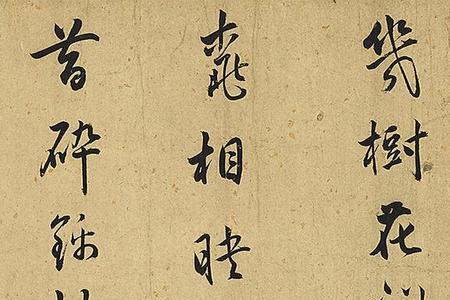 幾樹花
桃相映
昔碎錦